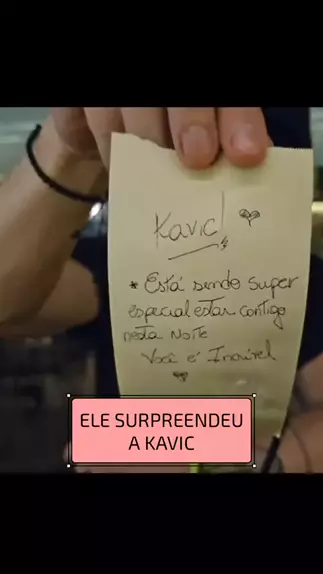 Kavic!
* Está sendo super
especial estar contigo
nesta Noite
Você é Incrível
ELE SURPREENDEU
A KAVIC